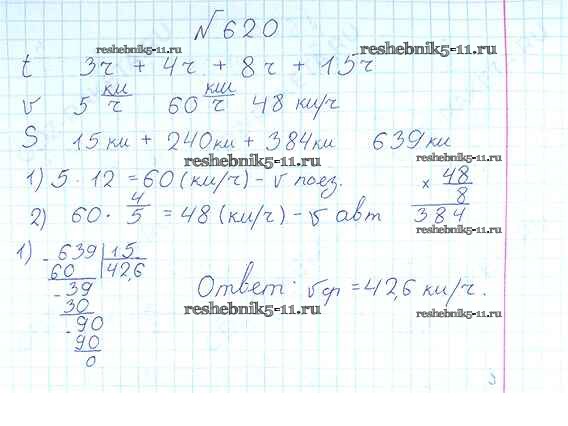 №620
reshebnik5-11.ru reshebnik5-11.ru
t 3ч + 4ч + 8ч + 15ч
v 5 км/ч 60 км/ч 48 км/ч
S 15км + 240км + 384км 639км
reshebnik5-11.ru reshebnik5-11.ru
1) 5 · 12 = 60 (км/ч) - v поез. × 48
8
2) 60 · 4/5 = 48 (км/ч) - v авт 384
reshebnik5-11.ru
1) - 639 | 15
60 42,6
- 39
30
- 90
90
0
Ответ: vср = 42,6 км/ч.
reshebnik5-11.ru reshebnik5-11.ru